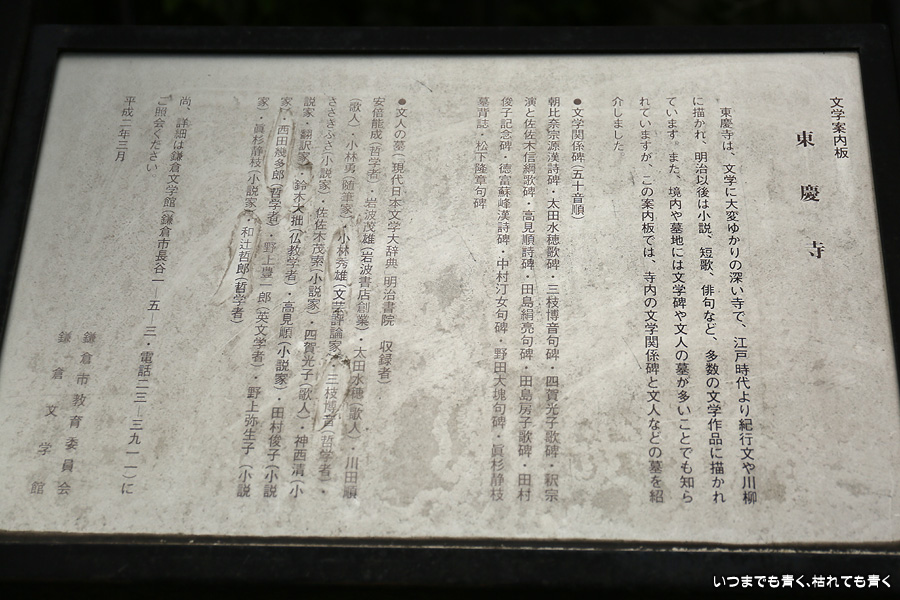 文学案内板
東慶寺
東慶寺は、文学に大変ゆかりの深い寺で、江戸時代より紀行文や川柳
に描かれ、明治以後は小説、短歌、俳句など、多数の文学作品に描かれ
ています。また、境内や墓地には文学碑や文人の墓が多いことでも知ら
れていますが、この案内板では、寺内の文学関係碑と文人などの墓を紹
介しました
●文学関係碑(五十音順)
朝比奈宗源漢詩碑・太田水穂歌碑・三枝博音句碑・四賀光子歌碑・釈宗
演と佐佐木信綱歌碑・高見順詩碑・田島絹亮句碑・田島房子歌碑・田村
俊子記念碑・徳富蘇峰漢詩碑・中村汀女句碑・野田大塊句碑・眞杉静枝
墓背誌・松下隆章句碑
●文人の墓(現代日本文学大辞典 明治書院 収録者)
安倍能成(哲学者)・岩波茂雄(岩波書店創業)・太田水穂(歌人)・川田順
(歌人)・小林勇(随筆家)・小林秀雄(文芸評論家)・三枝博音(哲学者)・
ささきふさ(小説家)・佐佐木茂索(小説家)・四賀光子(歌人)・神西清(小
説家・翻訳家)・鈴木大拙(仏教学者)・高見順(小説家)・田村俊子(小説
家)・西田幾多郎(哲学者)・野上豊一郎(英文学者)・野上弥生子(小説
家)・眞杉静枝(小説家)・和辻哲郎(哲学者)
尚、詳細は鎌倉文学館(鎌倉市長谷一ー五ー三・電話二三ー三九一一)に
ご照会ください
平成二年三月
鎌倉市教育委員会
鎌倉文学館
いつまでも青く、枯れても青く